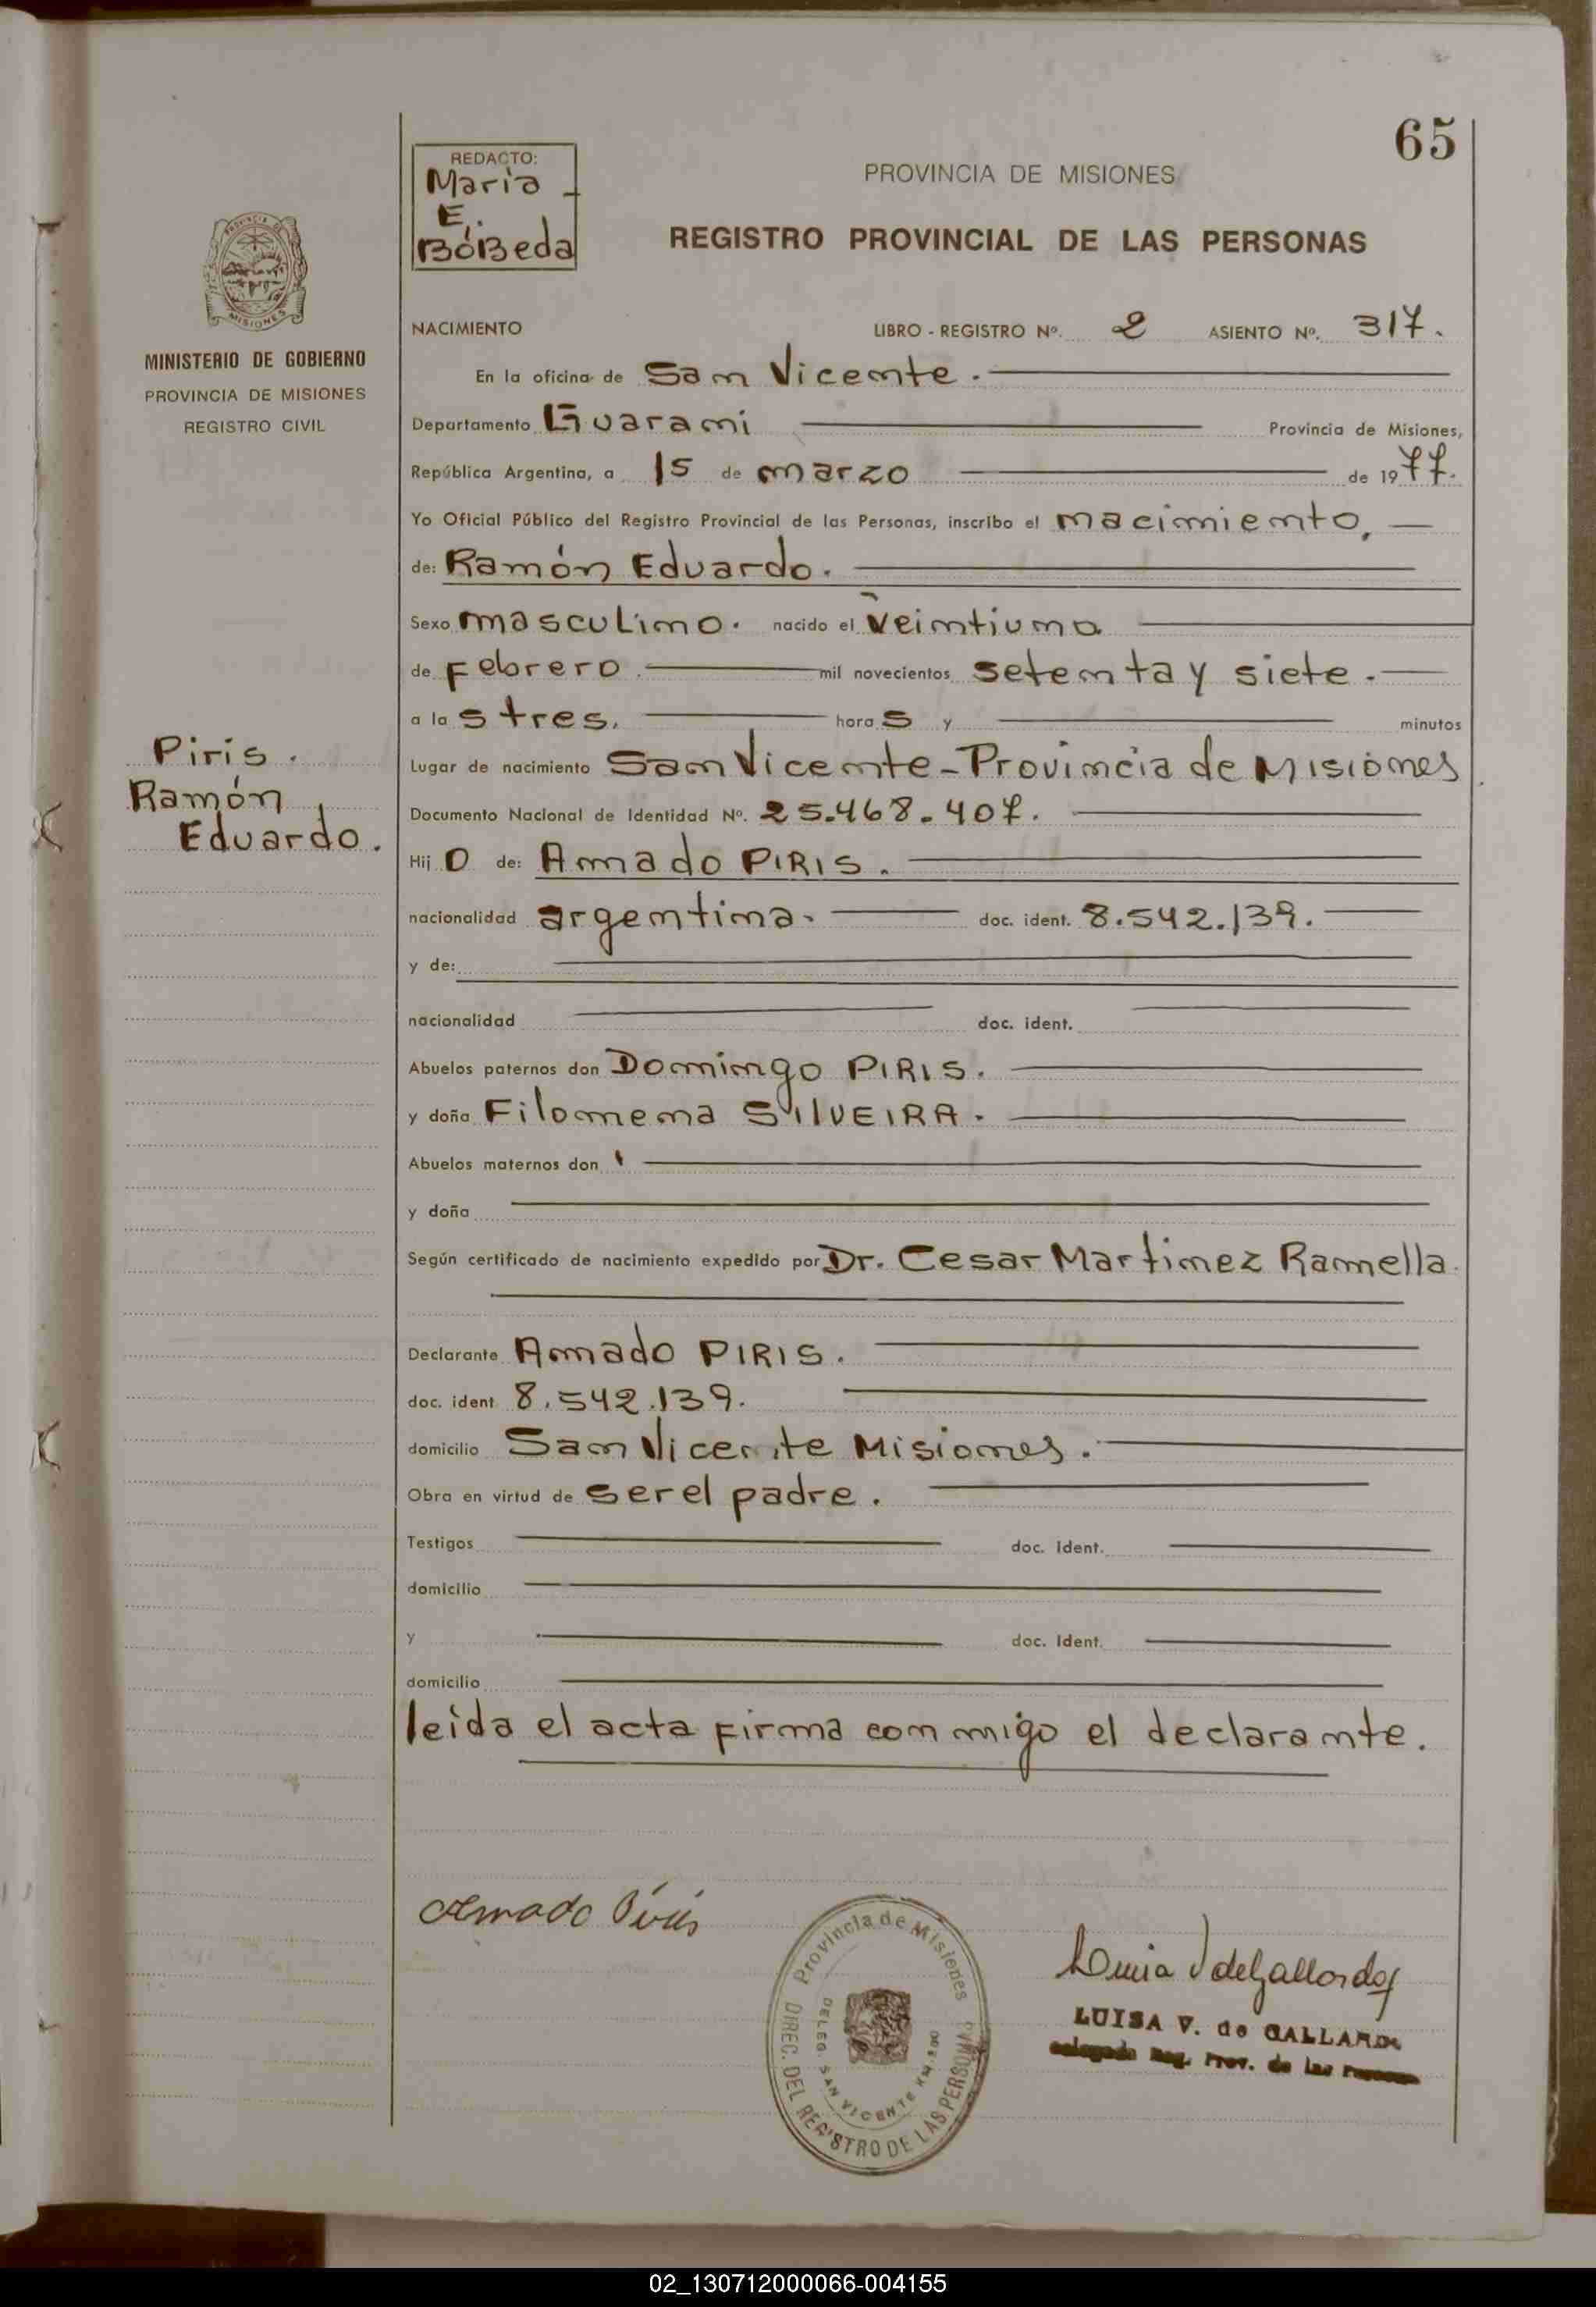 65
REDACTO:
Maria
E.
BóBeda
PROVINCIA DE MISIONES
REGISTRO PROVINCIAL DE LAS PERSONAS
PROVINCIA DE
MISIONES
MINISTERIO DE GOBIERNO
PROVINCIA DE MISIONES
REGISTRO CIVIL
NACIMIENTO LIBRO - REGISTRO Nº. 2 ASIENTO Nº. 317.
En la oficina de San Vicente.
Departamento Guarani Provincia de Misiones,
República Argentina, a 15 de marzo de 1977.
Yo Oficial Público del Registro Provincial de las Personas, inscribo el nacimiento,
de: Ramón Eduardo.
Sexo masculino. nacido el veintiuno
de Febrero mil novecientos setenta y siete.
a las tres. horas y minutos
Lugar de nacimiento San Vicente - Provincia de Misiones
Piris.
Ramón
Eduardo.
Documento Nacional de Identidad Nº. 25.468.407.
Hijo de: Amado PIRIS.
nacionalidad argentina. doc. ident. 8.542.139.
y de:
nacionalidad doc. ident.
Abuelos paternos don Domingo PIRIS.
y doña Filomena SILVEIRA.
Abuelos maternos don
y doña
Según certificado de nacimiento expedido por Dr. Cesar Martinez Ramella.
Declarante Amado PIRIS.
doc. ident 8.542.139.
domicilio San Vicente Misiones.
Obra en virtud de ser el padre.
Testigos doc. ident.
domicilio
y doc. Ident.
domicilio
leida el acta firma conmigo el declarante.
Amado Piris
Provincia de Misiones
DIREC. DEL REGISTRO DE LAS PERSONAS
DELEG. SAN VICENTE KM.
Luisa V de Gallardo
LUISA V. de GALLARDO
Reg. Prov. de las
02_130712000066-004155